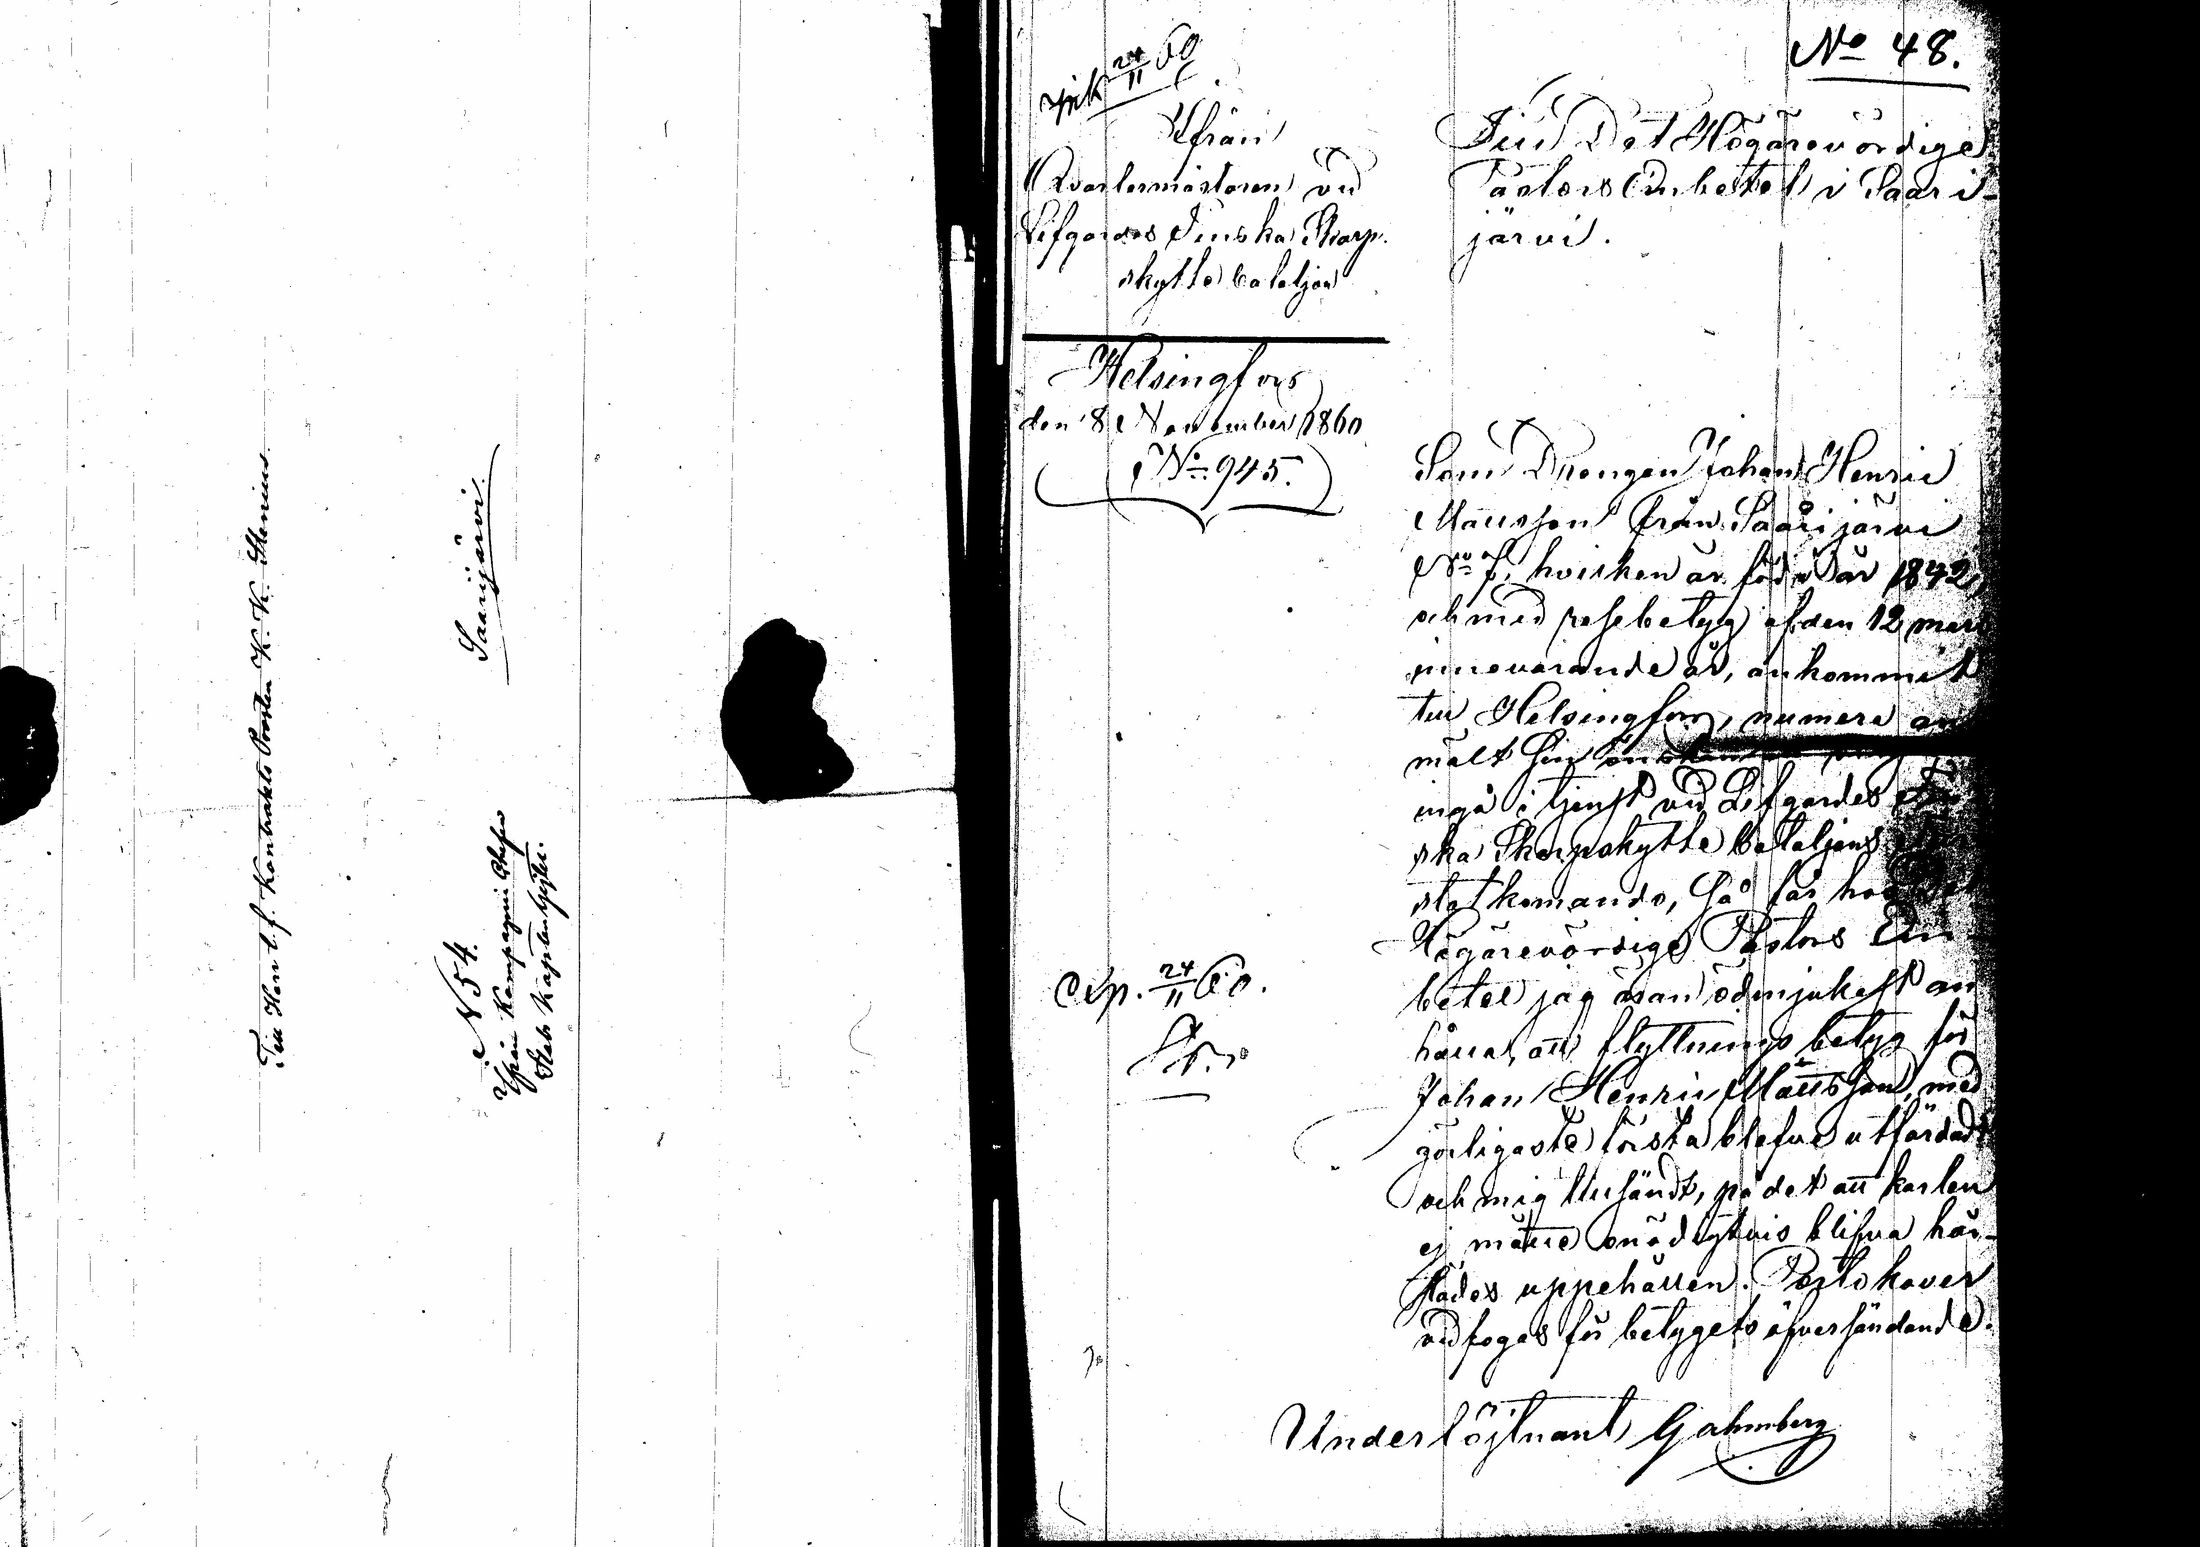 Till Herr t.f. Kontrakts Prosten K. K. Stenius.
Saarijärvi.
N 54.
Ifrån Kompagni Chefen
Stabs Kapiten
No 48.
ink 24/11 60
Ifrån
Qvartermästaren vid
Lifgardes Finska Skarp-
skytte bataljon
Helsingfors
den 8 November 1860
No 945.
Till Det Högärevördige
Pastors Embetet i Saari-
järvi.
Som Drengen Johan Henric
Mattsson från Saarijärvi
No 7, hvilken är född år 1842,
och med resebetyg af den 12 mars
innevarande år, ankommit
till Helsingfors, numera an
mält sin önskan
ingå i tjenst vid Lifgardes Fin
ska Skarpskytte bataljons
stat komando, så får hos
Högärevördige Pastors Em-
betet jag äran ödmjukast an
hålla, att flyttnings betyg för
Johan Henric Mattsson, med
görligaste första blefve utfärdadt
och mig tillsändt, på det att karlen
ej måtte onödigtvis blifva här-
städes uppehållen. Porto kover
vidfogas för betygets öfversändande.
Exp. 24/11 60.
Underlöjtnant Gahmberg